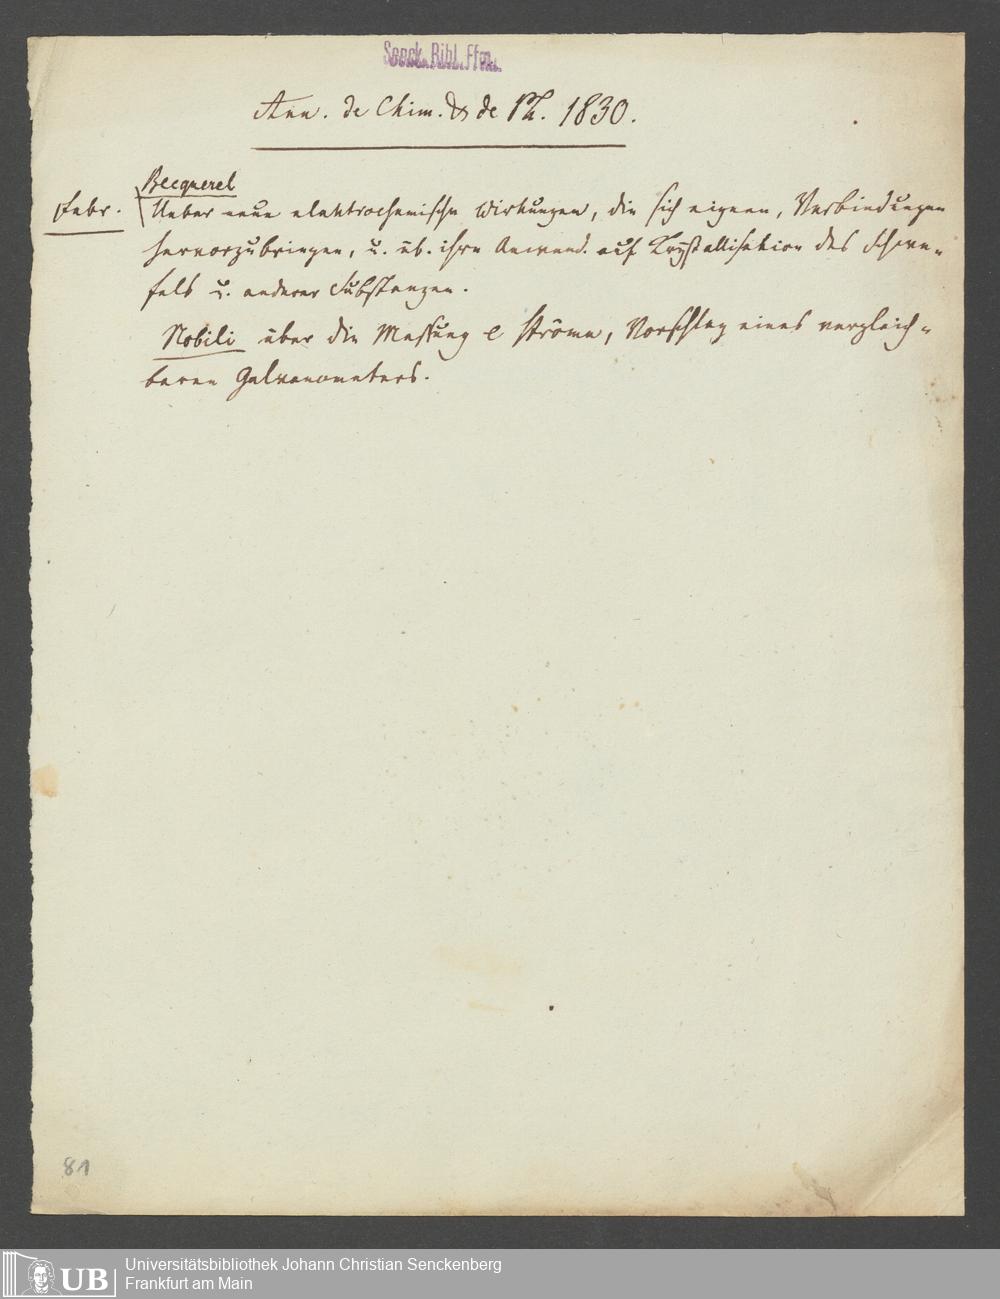 Senck. Bibl. Ffm.
Ann. de Chim. & de Ph. 1830.
Becquerel
Febr. Ueber neue elektrochemische Wirkungen, die sich eignen, Verbindungen
hervorzubringen, u. üb. ihre Anwend. auf Krystallisation des Schwe-
fels u. anderer Substanzen.
Nobili über die Messung e Ströme, Vorschlag eines vergleich-
baren Galvanometers.
81
UB
Universitätsbibliothek Johann Christian Senckenberg
Frankfurt am Main